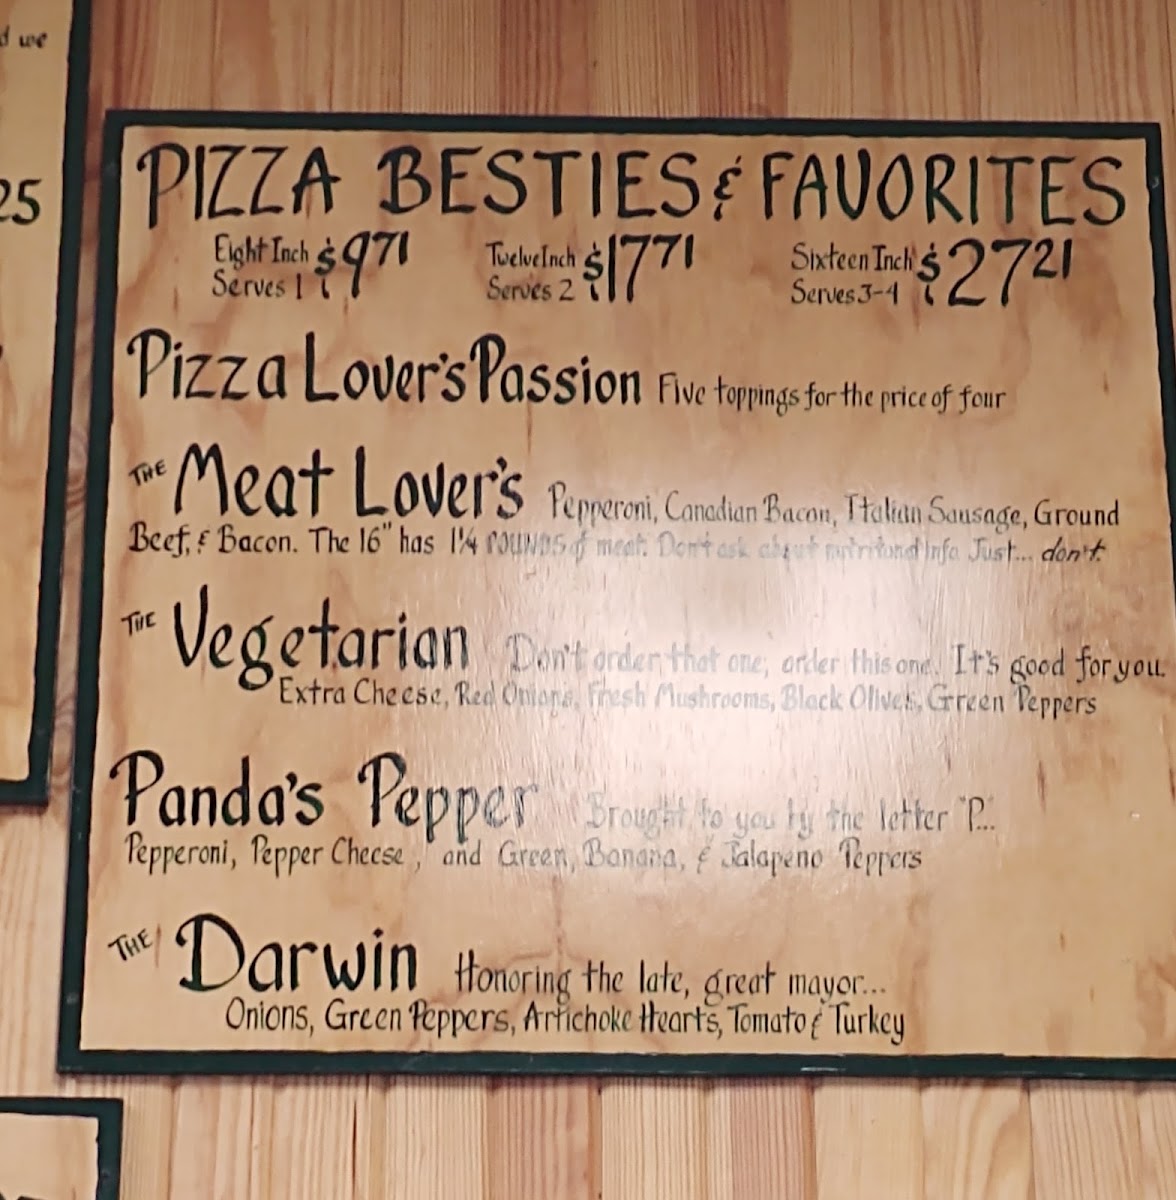 d we
25
PIZZA BESTIES & FAVORITES
Eight Inch $9 71 Twelve Inch $17 71 Sixteen Inch $27 21
Serves 1 Serves 2 Serves 3-4
Pizza Lover's Passion Five toppings for the price of four
THE Meat Lover's Pepperoni, Canadian Bacon, Italian Sausage, Ground
Beef, & Bacon. The 16" has 1¼ POUNDS of meat. Don't ask about nutritional info. Just... don't.
THE Vegetarian Don't order that one, order this one. It's good for you.
Extra Cheese, Red Onions, Fresh Mushrooms, Black Olives, Green Peppers
Panda's Pepper Brought to you by the letter "P...
Pepperoni, Pepper Cheese, and Green, Banana, & Jalapeno Peppers
THE Darwin Honoring the late, great mayor...
Onions, Green Peppers, Artichoke Hearts, Tomato & Turkey